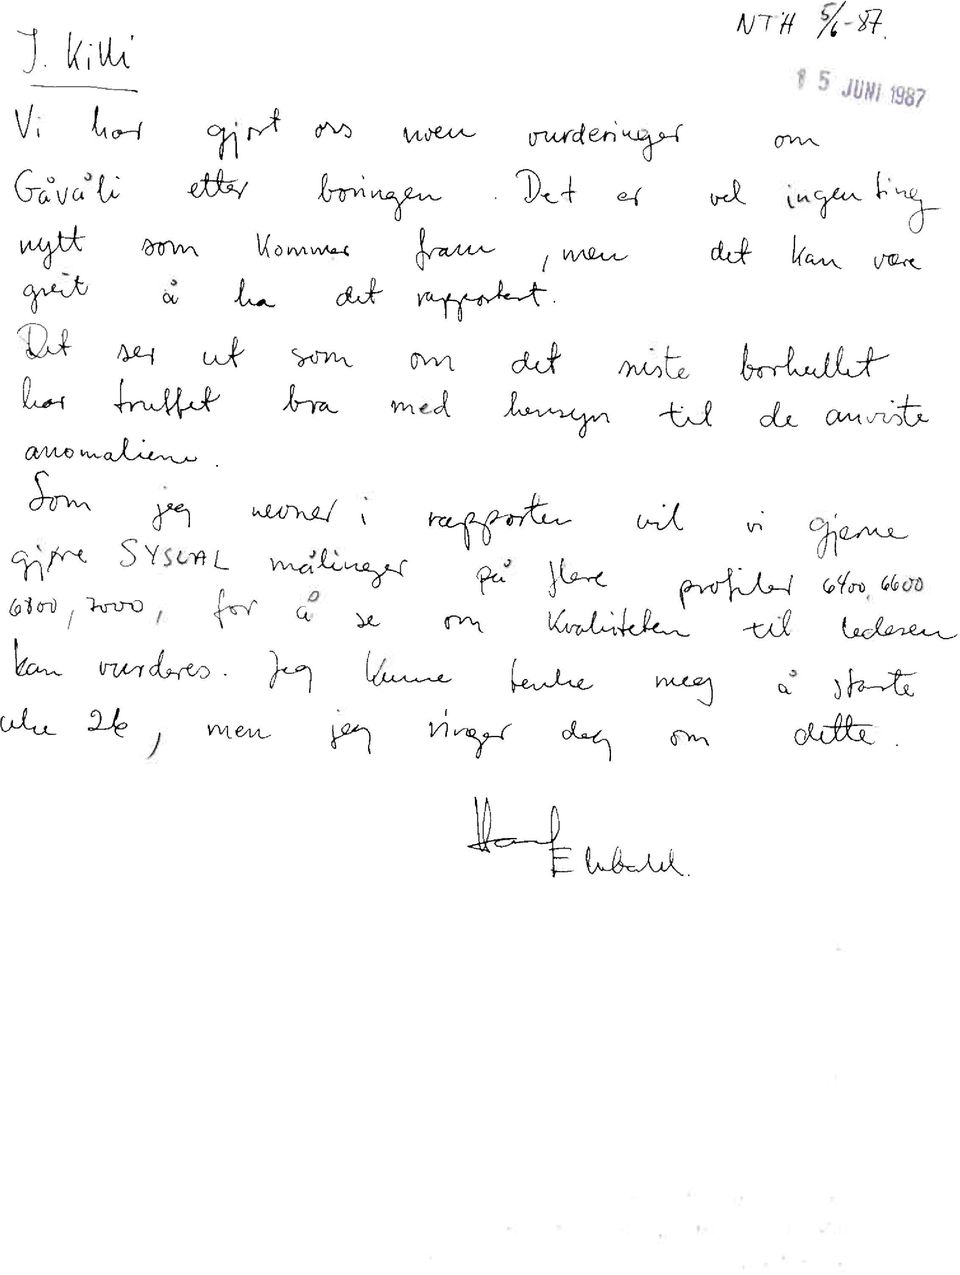 NTH 5/6-87.
J. Killi
15 JUNI 1987
Vi har gjort oss noen vurderinger om
Gåvåli etter boringen. Det er vel ingen ting
nytt som kommer fram, men det kan være
greit å ha det rapportert.
Det ser ut som om det siste borhullet
har truffet bra med hensyn til de anviste
anomaliene.
Som jeg nevner i rapporten vil vi gjerne
gjøre SYSCAL målinger på flere profiler 6400, 6600
6800, 7000, for å se om kvaliteten til lederen
kan vurderes. Jeg kunne tenke meg å starte
uke 26, men jeg ringer deg om dette.